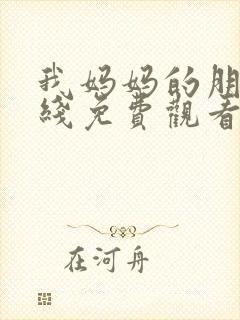 我妈妈的朋
綫免費觀看
在河舟